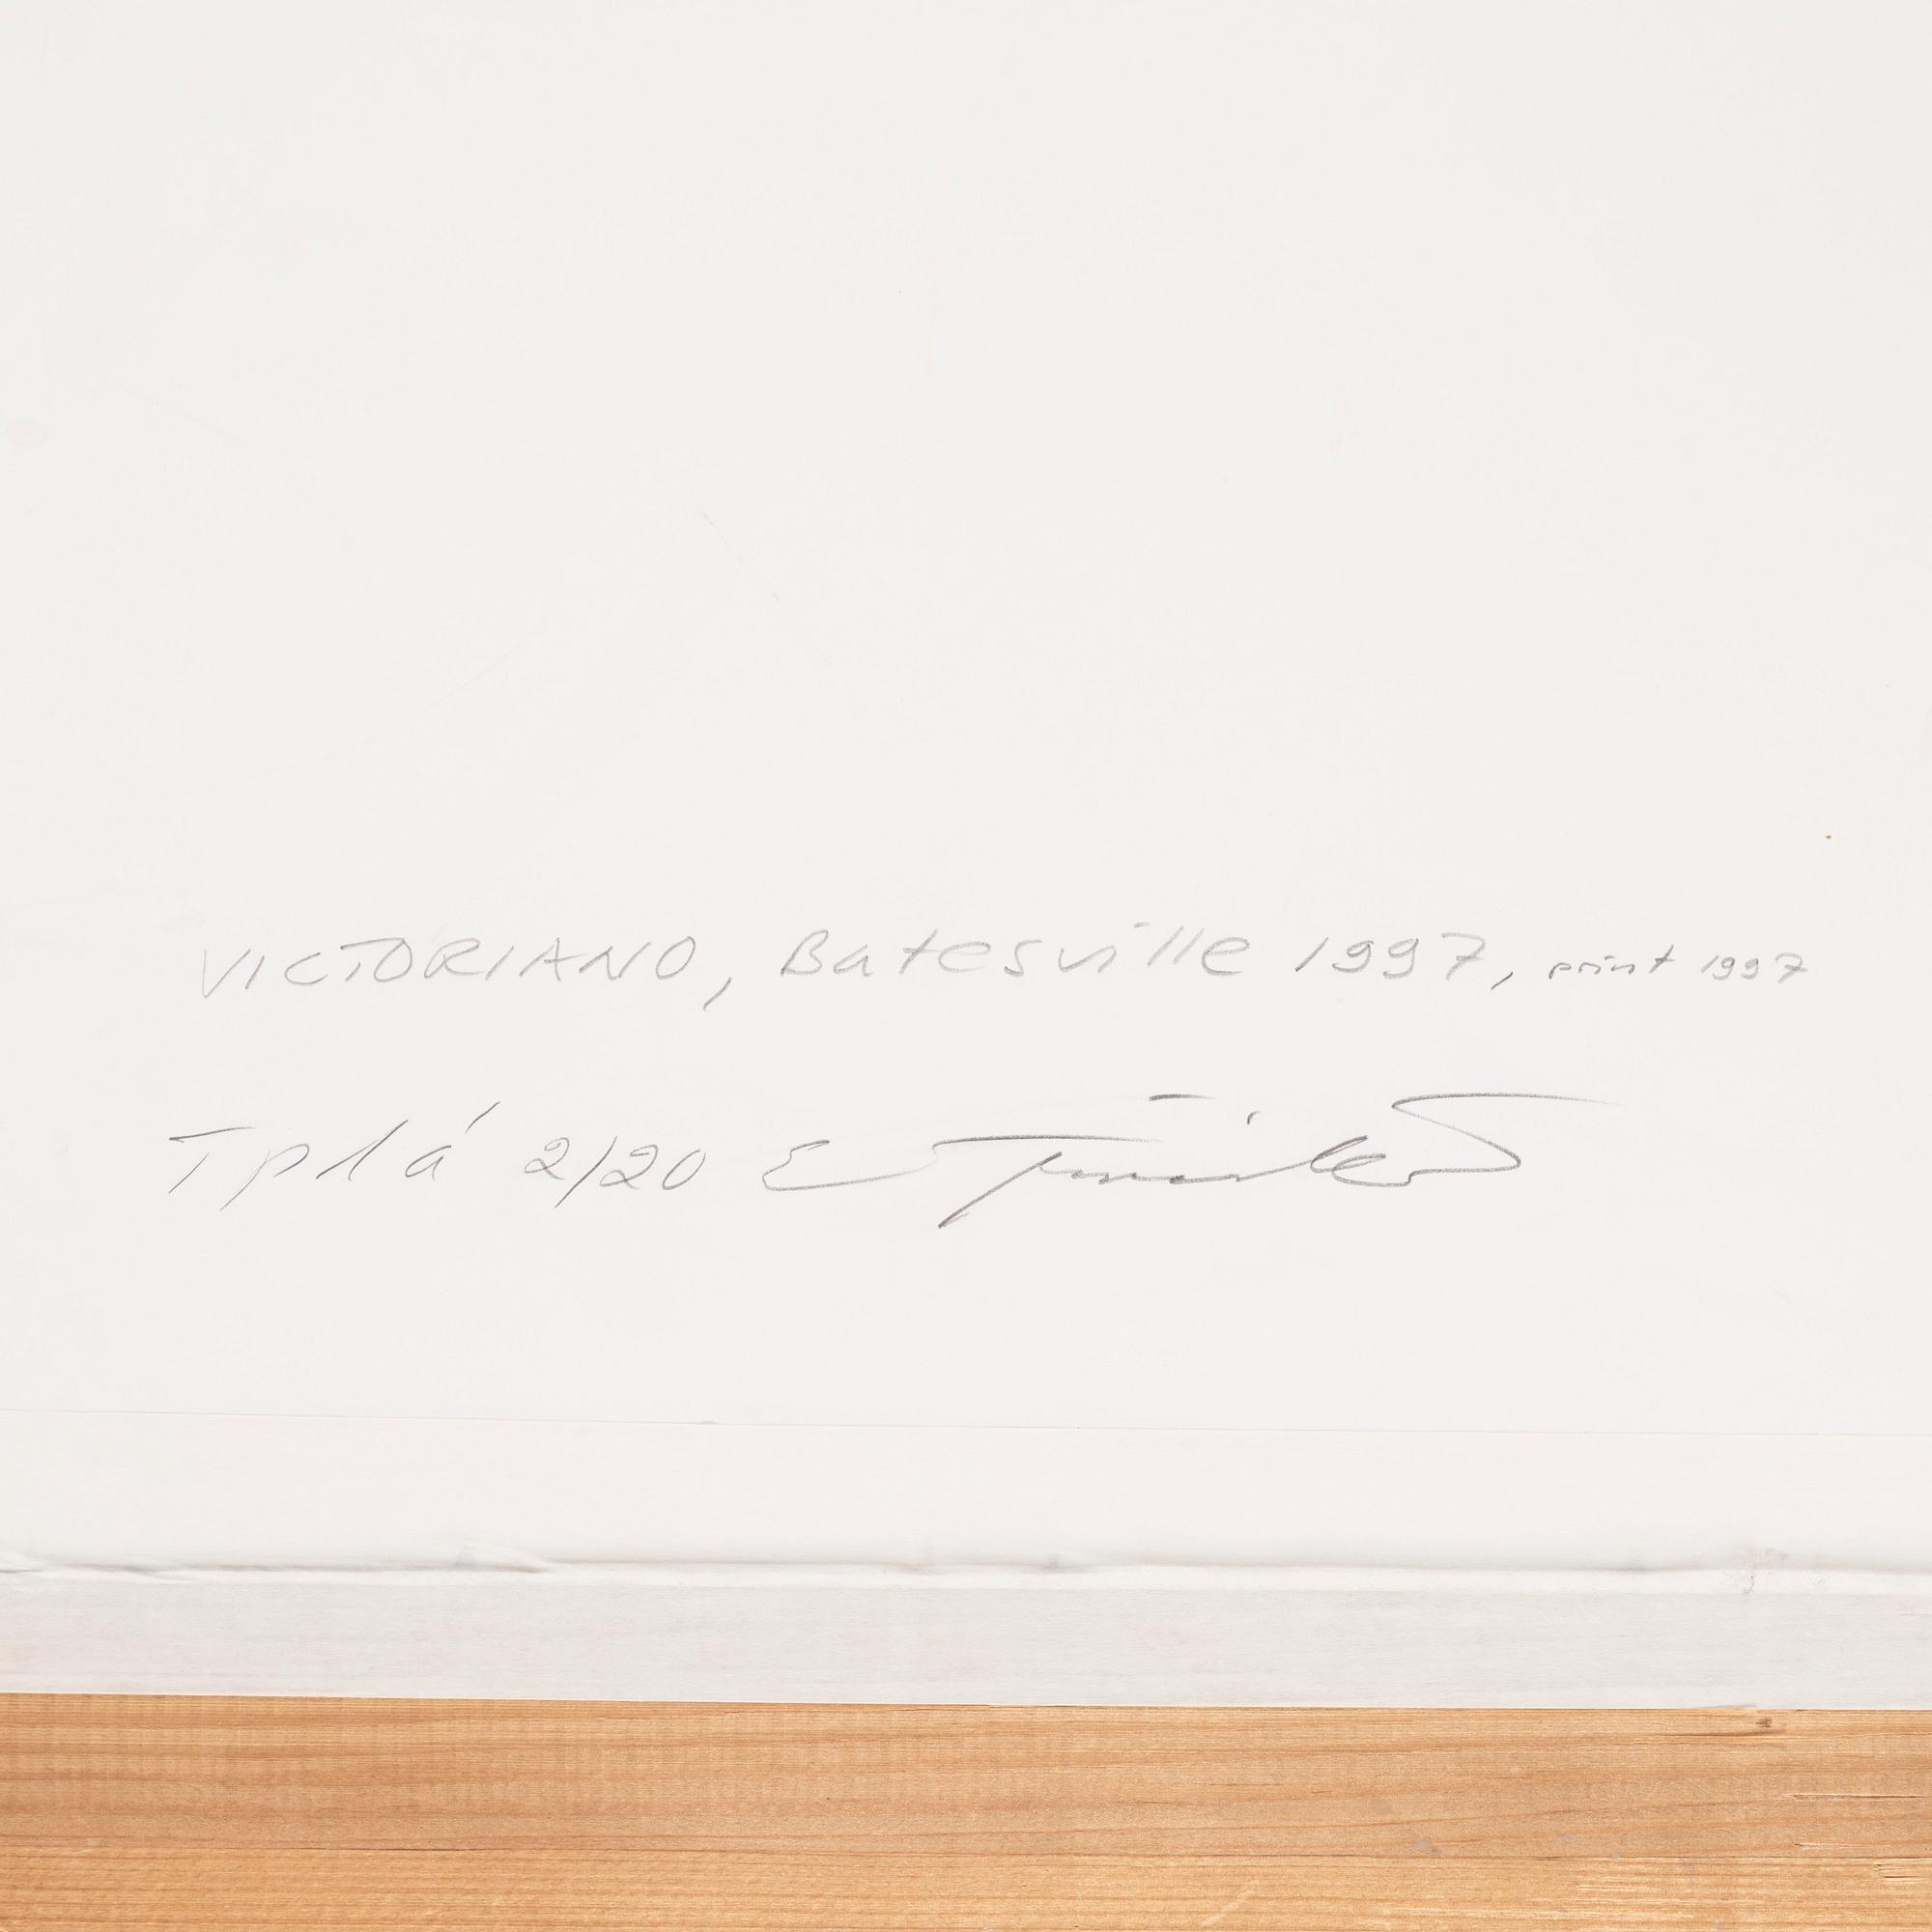 VICTORIANO, Batesville 1997, print 1997
Tpl á 2/20 E